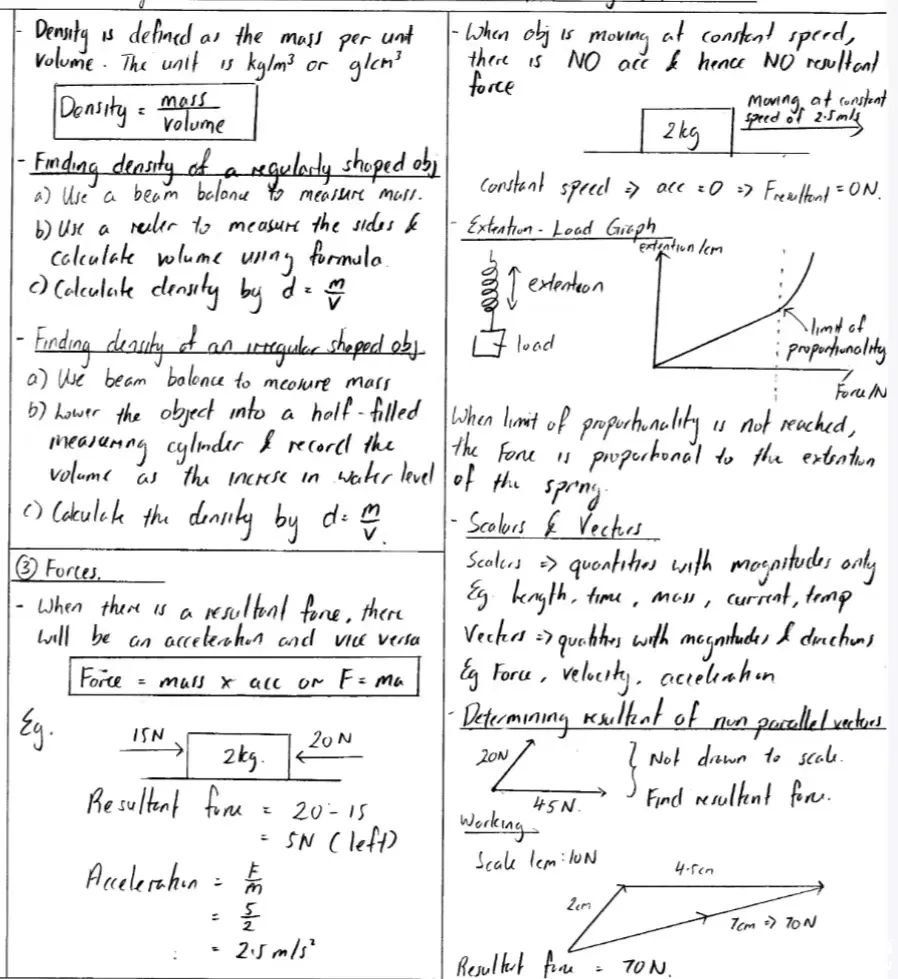 - Density is defined as the mass per unit
volume. The unit is kg/m³ or g/cm³
Density = mass
volume
- Finding density of a regularly shaped obj
a) Use a beam balance to measure mass.
b) Use a ruler to measure the sides &
calculate volume using formula.
c) Calculate density by d = m
v
- Finding density of an irregular shaped obj.
a) Use beam balance to measure mass
b) Lower the object into a half-filled
measuring cylinder & record the
volume as the increse in water level
c) Calculate the density by d = m
v.
③ Forces.
- When there is a resultant force, there
will be an acceleration and vice versa
Force = mass x acc or F = ma
Eg.
15N
2kg.
20N
Resultant force = 20 - 15
= 5N (left)
Acceleration = F
m
= 5
2
= 2.5 m/s²
- When obj is moving at constant speed,
there is NO acc & hence NO resultant
force
2kg
Moving at constant
speed of 2.5m/s
Constant speed => acc = 0 => Fresultant = 0N.
- Extention - Load Graph
extention
load
extention/cm
limit of
proportionality
Force/N
When limit of proportionality is not reached,
the Force is proportional to the extention
of the spring.
- Scalars & Vectors
Scalers => quantities with magnitudes only
Eg. length, time, mass, current, temp
Vectors => quatities with magnitudes & directions
Eg Force, velocity, acceleration
- Determining resultant of non parallel vectors
20N
45N.
Not drawn to scale.
Find resultant force.
Working
Scale 1cm : 10N
4.5cm
2cm
7cm => 70N
Resultant force = 70N.